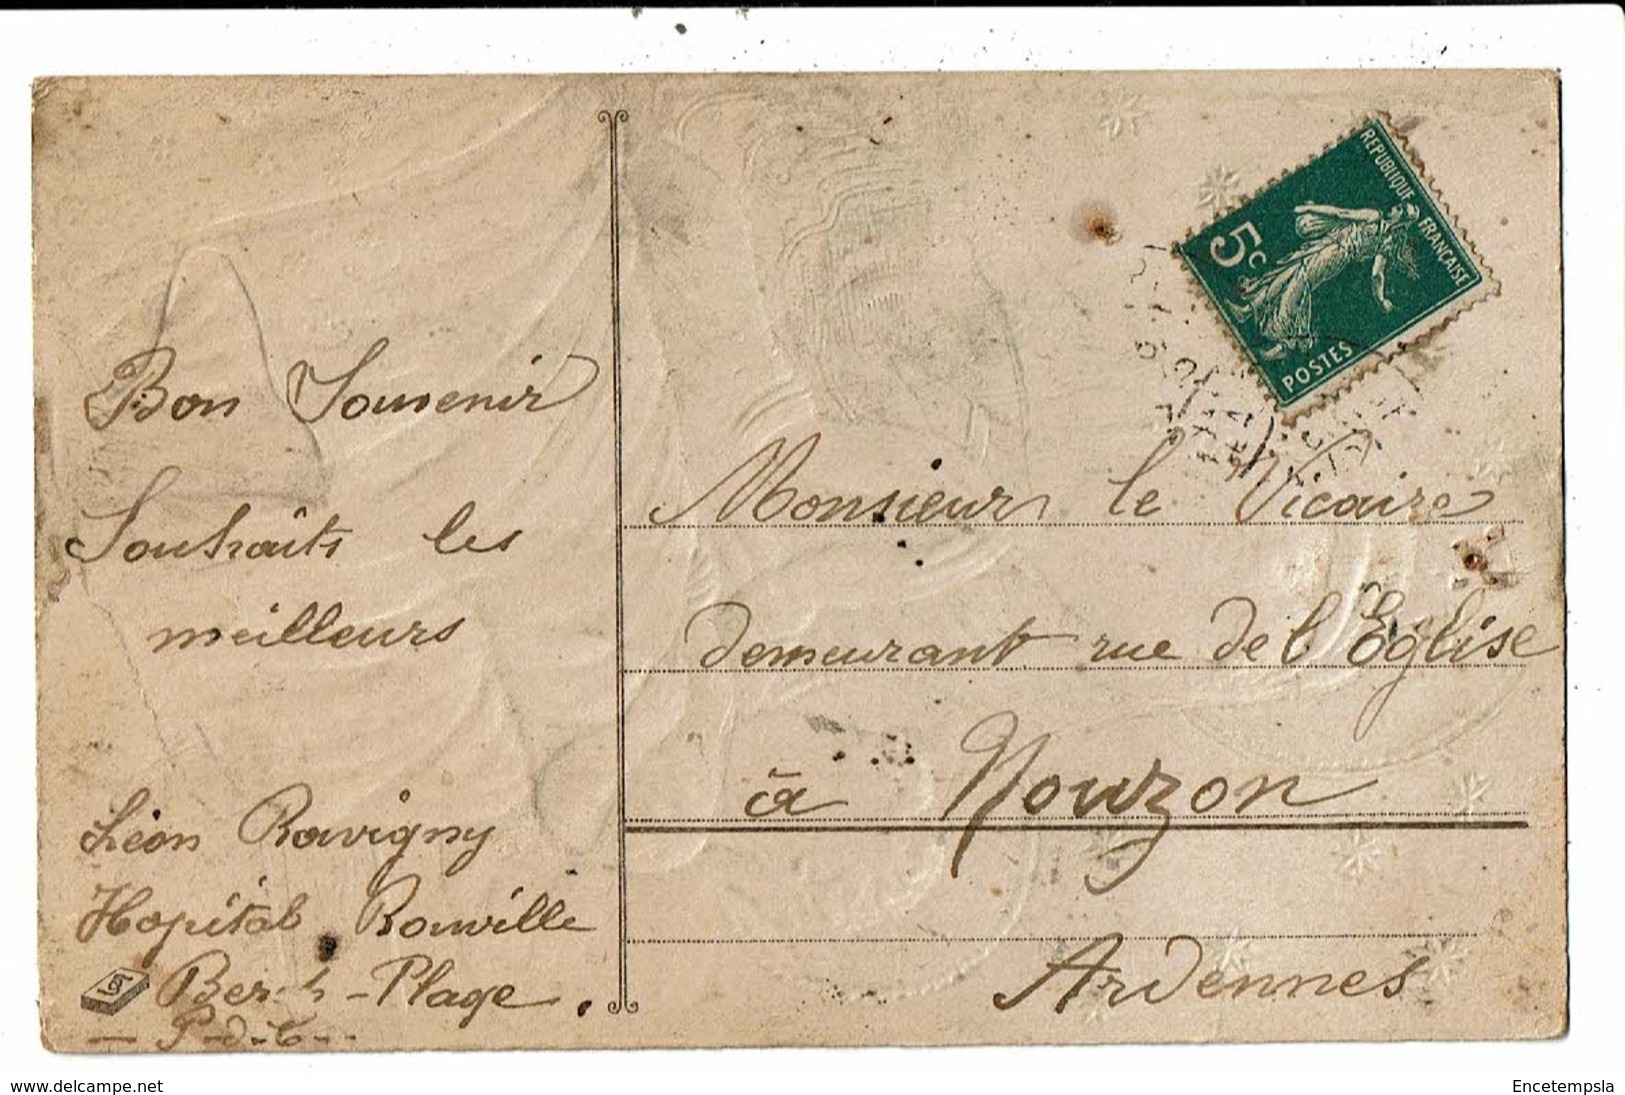 Bon Souvenir
Souhaits les
meilleurs
Léon Ravigny
Hopital Rouville
Berck-Plage.
P-d-C
REPUBLIQUE FRANÇAISE
5c
POSTES
Monsieur le Vicaire
demeurant rue de l'Eglise
à Nouzon
Ardennes
www.delcampe.net
Encetempsla